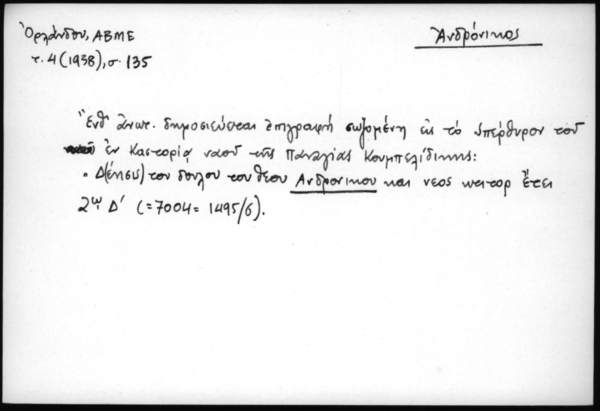 Ὀρλάνδου, ΑΒΜΕ
τ. 4 (1938), σ. 135
Ἀνδρόνικος
Ἔνθ' ἀνωτ. δημοσιεύεται ἐπιγραφή σωζομένη εἰς τό ὑπέρθυρον τοῦ
ἐν Καστορίᾳ ναοῦ τῆς Παναγίας Κουμπελίδικης:
"Δ(έησις) του δουλου του θεου Ανδρονικου και νεος κτιτορ ἔτει
ζω Δ' (=7004= 1495/6).